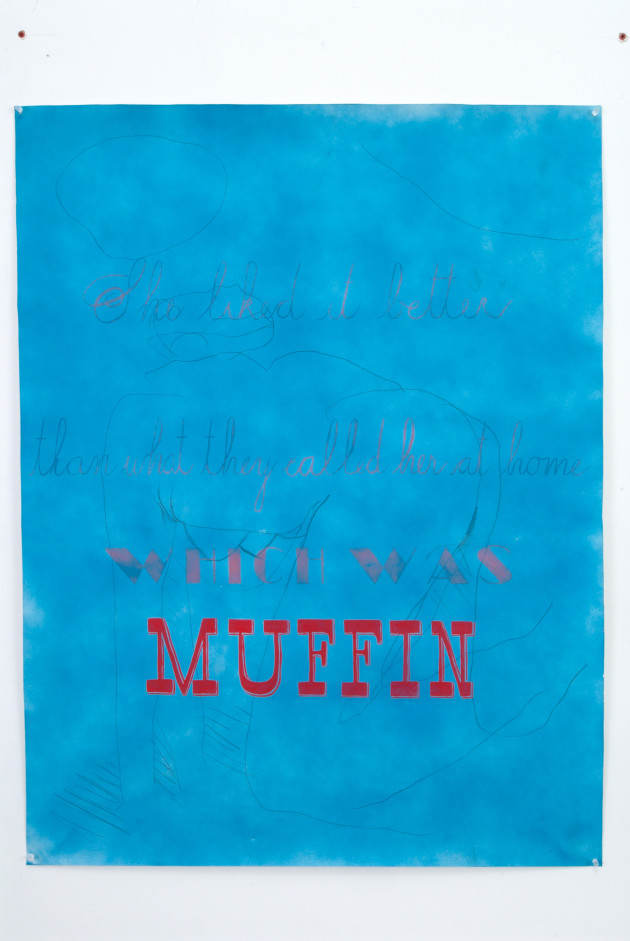 She liked it better
than what they called her at home
WHICH WAS
MUFFIN